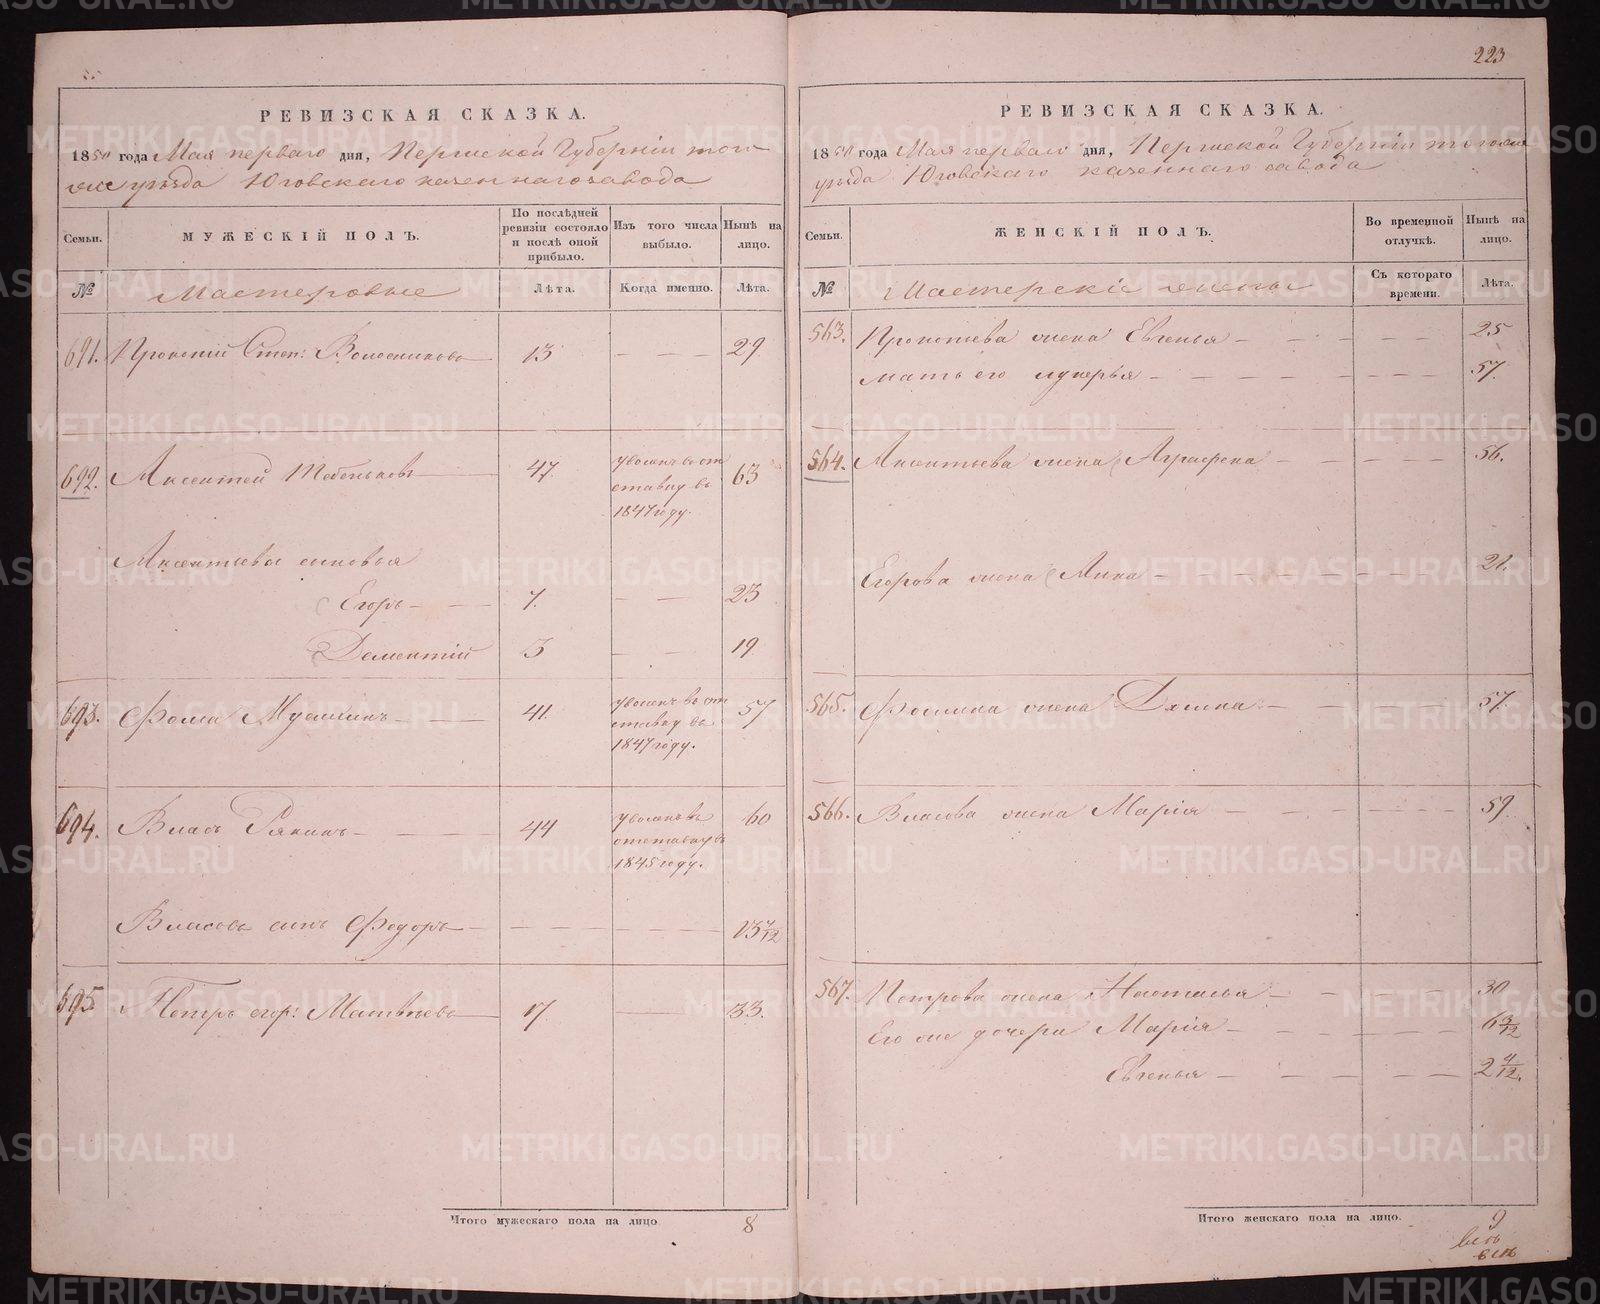 223
РЕВИЗСКАЯ СКАЗКА.
1850 года Мая перваго дня, Пермской Губерніи того
же уезда Юговскаго казеннаго завода
Семьи.
МУЖЕСКІЙ ПОЛЪ.
По последней ревизіи состояло и после оной прибыло.
Изъ того числа выбыло.
Ныне на лицо.
№
Мастеровые
Лета.
Когда именно.
Лета.
691. Прокопій Степ: Волосниковъ 13 — — — 29
692. Аксентей Тебеньковъ 47. уволенъ въ от 63
ставку въ
1847 году.
Аксентьевы сыновья
Егоръ — — 7. — — — 23
Дементій 3 — — — 19
693. Фома Мушкинъ — — — 41. уволенъ въ от 57
ставку въ
1847 году.
694. Власъ Рякинъ — — — — 44 уволенъ въ 60
отставку въ
1845 году.
Власовъ сынъ Федоръ — — — — — — — 13 7/12
695. Петръ егор: Матвеевъ 17. — — 33.
Итого мужескаго пола на лицо 8
РЕВИЗСКАЯ СКАЗКА.
1850 года Мая перваго дня, Пермской Губерніи тогоже
уезда Юговскаго казеннаго завода
Семьи.
ЖЕНСКІЙ ПОЛЪ.
Во временной отлучке.
Ныне на лицо.
№
Мастерскіе жены
Съ котораго времени.
Лета.
563. Прокопьева жена Евгенья — — — — — 25
мать его лукерья — — — — — — 57.
564. Аксентьева жена Аграфена — — — — 56.
Егорова жена Анна — — — — — — — 21.
565. Фомина жена Домна — — — — 57.
566. Власова жена Марія — — — — — 59.
567. Петрова жена Настасья — — — — 30
Его же дочери Марія — — — — — 6 3/12
Евгенья — — — — — 2 4/12.
Итого женскаго пола на лицо. 9